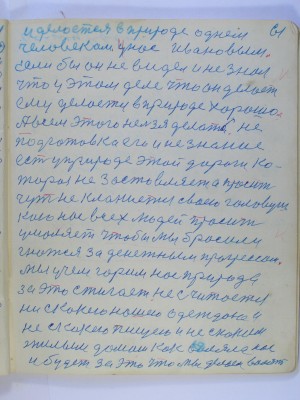 и делается в природе одним 61
человеком у нас Ивановым.
если бы он не видел и не знал
что у этом деле что он делает
ему делается в природе хорошо.
А всем этого нельзя делать не
подготовка его и не знание
ест у природе этой дороги ко-
торая не заставляет а просит
чуть не кланяется своею головушке
нас всех людей просит
умоляет чтобы мы бросили
гнатся за денежным процессом.
мы учем горим на природе
за это стигает не считается
ни с какою нашею одеждою и
не с какою пищею и не с каким
жилым домом как валяла нас
и будет за это что мы делаем валят